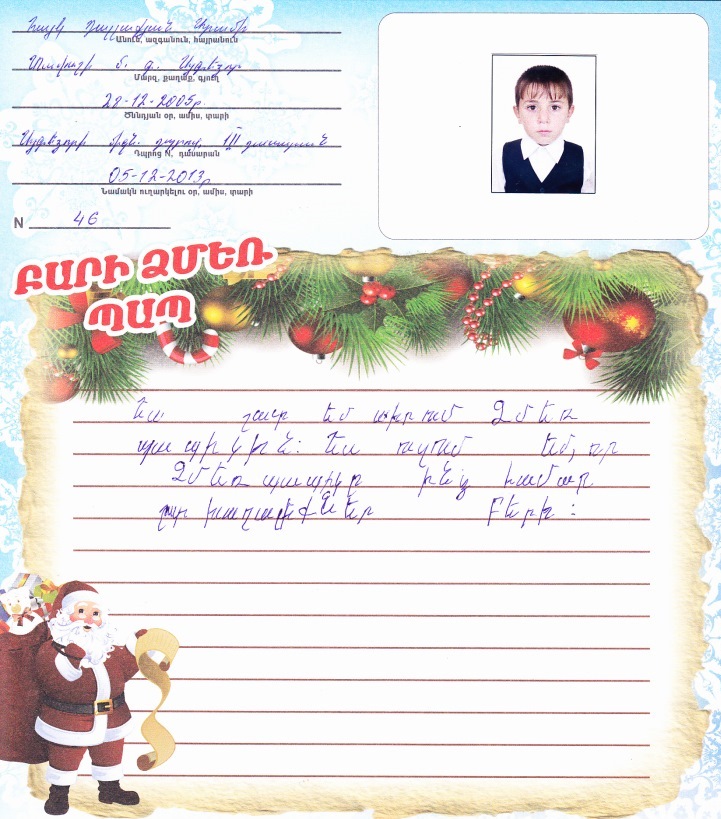 Հայկ Դալլաքյան Արամի
Անուն, ազգանուն, հայրանուն
Արմավիրի մ. գ. Այգեշատ
Մարզ, քաղաք, գյուղ
28-12-2005թ.
Ծննդյան օր, ամիս, տարի
միջն. դպրոց, III դասարան
Դպրոց N, դասարան
05-12-2013թ
Նամակն ուղարկելու օր, ամիս, տարի
N 46
ԲԱՐԻ ՁՄԵՌ
ՊԱՊ
Ես շատ եմ սիրում Ձմեռ
պապիկին: Ես ուզում եմ, որ
Ձմեռ պապիկը ինձ համար
շատ խաղալիքներ բերի: